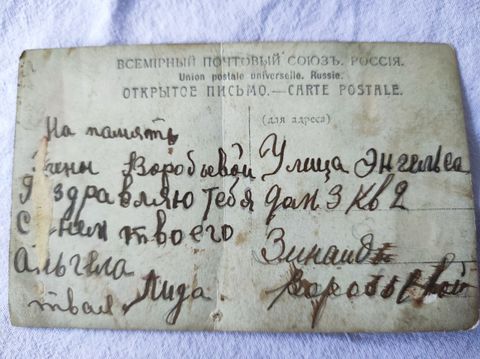 ВСЕМІРНЫЙ ПОЧТОВЫЙ СОЮЗЪ. РОССІЯ.
Union postale universelle. Russie.
ОТКРЫТОЕ ПИСЬМО.—CARTE POSTALE.
(для адреса)
На память
Воробьевой
здравляю тебя
С днем твоего
Аньгела
твая Лида
Улица Энгельса
дом 3 кв 2
Зинаиде
Воробьевой